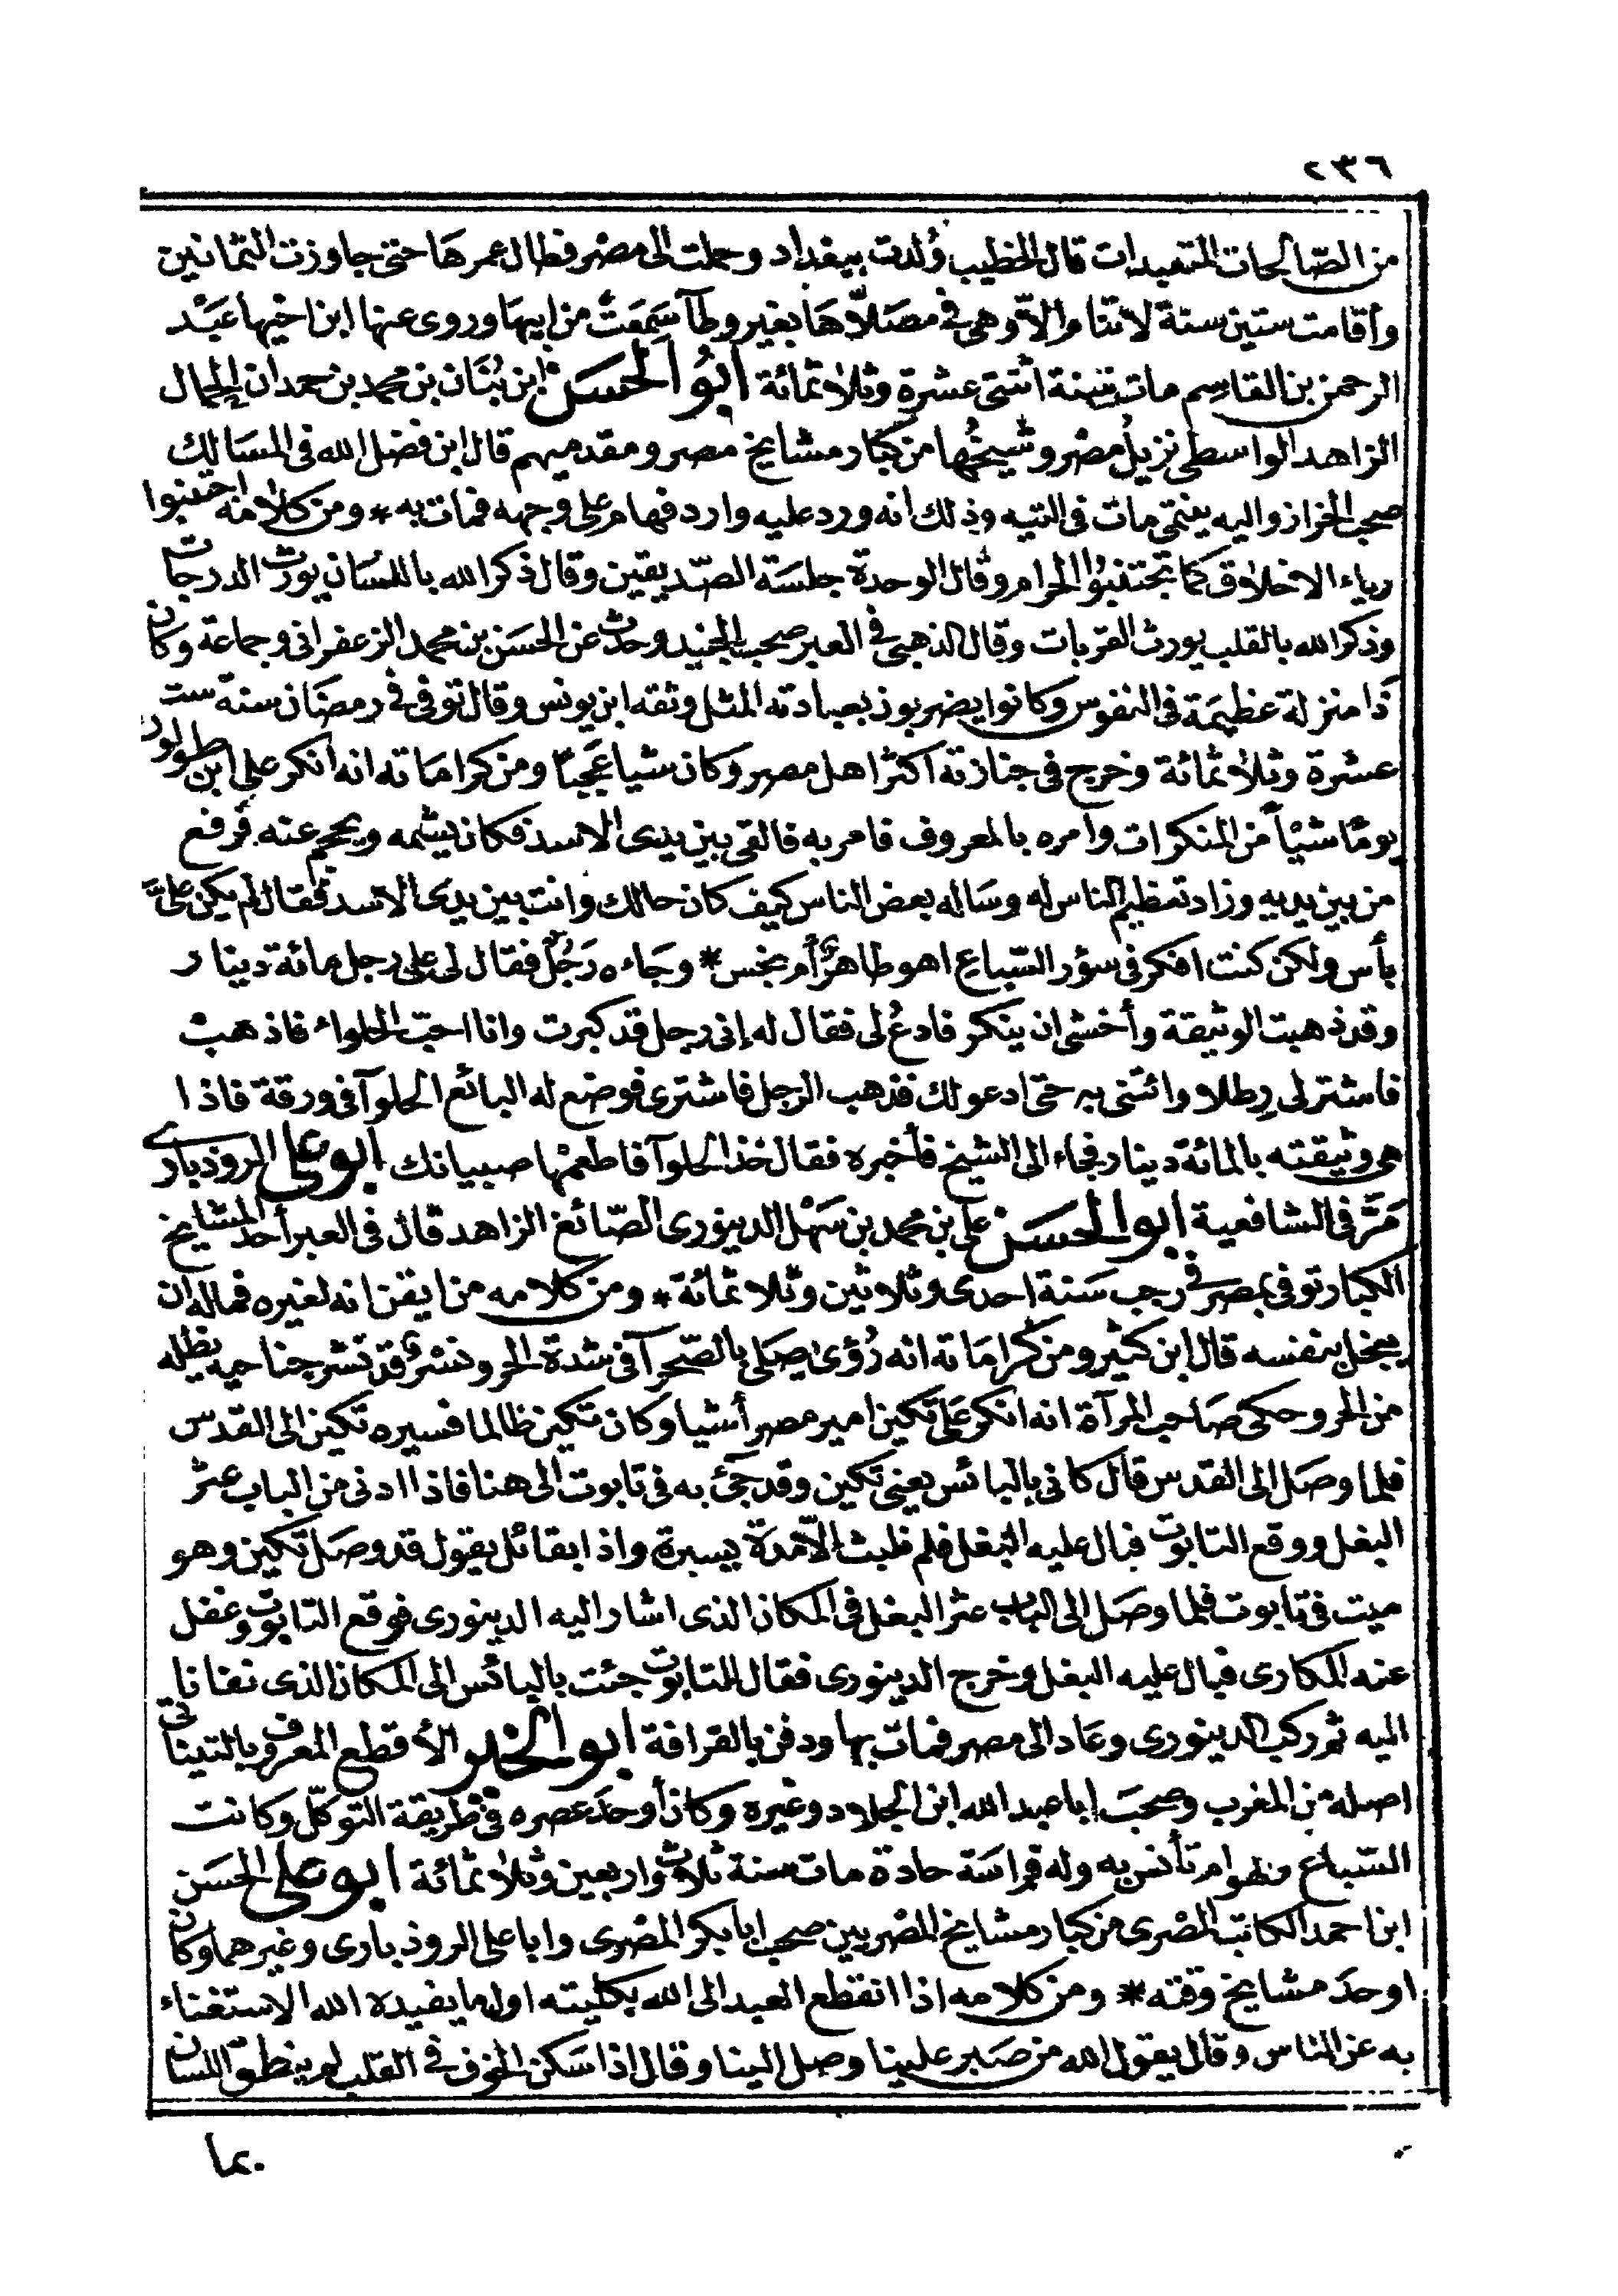 ٢٣٦
من الصّالحات المتعبدات قال الخطيب وُلدت ببغداد وحملت الى مصْر فطال عمرهَا حتى جاوزت الثمانين
وأقامت ستين سنة لاتنام الاّ وهى فى مصَلاّهَا بغير وطآ سَمِعَتْ من ابيهَا وروى عنها ابن اخيها عَبْد
الرحمن بن القاسِم مات سَنة اثنتى عشرة وثلاثمائة ابُو الحسَن ابن بُنَان بن محمد بن حمدان الجمال
الزاهد الواسطى نزيلُ مصْر وشيخُها من كبار مشايخ مصر ومقدميهم قال ابن فضل الله فى المسَالك
صحب الخراز واليه ينتمى مات فى التيه وذلك انه ورد عليه وارد فهام على وجهه فمات به * ومن كلامه اجتنبوا
رياء الاخلاق كما تجتنبوا الحرام وقال الوحدة جلسَة الصّديقين وقال ذكر الله باللسَان يورث الدرجات
وذكر الله بالقلب يورث القربات وقال الذهبى فى العبر صحب الجنيد وحدث عن الحسَن بن محمد الزعفرانى وجماعة وكان
ذَا منزلة عظيمَة فى النفوس وكانوا يضربون بعبادته المثل وثقه ابن يونس وقال توفى فى رمضَان سنة ست
عشرة وثلاثمائة وخرج فى جنازته اكثر اهل مصر وكان شيا عجَبًا ومن كرامَاته انه انكر على ابن طولون
يومًا شيْأً من المنكرات وأمره بالمعروف فامر به فالقى بين يدى الاسد فكان يشمه ويحجم عنه فرفع
من بين يديه وزاد تعظيم الناس له وسَاله بعض الناس كيف كان حالك وانت بين يدى الاسد فقال لم يكن علىَّ
بأس ولكن كنت افكر فى سؤر السّباع اهو طاهرٌ أم نجس * وجَاءه رَجُلٌ فقال لى على رجل مائة دينار
وقد ذهبت الوثيقة وأخشى ان ينكر فادعُ لى فقال له إنى رجل قد كبرت وانا احب الحلواء فاذهبْ
فاشتر لى رِطلا وائتنى به حتى ادعو لك فذهب الرجل فاشترى فوضع له البائع الحلوآ فى ورقة فاذا
هى وثيقته بالمائة دينار فجاء الى الشيخ فأخبره فقال خذ الحلوآ فاطعمْها صبيانك ابو على الروذبارى
مَرَّ فى الشافعية ابو الحسَن على بن محمد بن سَهْل الدينورى الصّائغ الزاهد قال فى العبر أحد المشايخ
الكبار توفى بمصر فى رجب سَنة احدى وثلاثين وثلاثمائة * ومن كلامه من ايقن انه لغيره فماله ان
يبخل بنفسه قال ابن كثير ومن كرامَاته انه رُؤى يصَلى بالصّحرآ فى شدة الحر ونسْر قد نشر جناحيه يظله
من الحر وحكى صَاحب المرآة انه انكر عَلى تكين امير مصر أشيا وكان تكين ظالما فسيره تكين الى القدس
فلما وصَل الى القدس قال كانى بالبائس يعنى تكين وقد جئ به فى تابوت الى هنا فاذا ادنى من الباب عثر
البغل ووقع التابوت فبال عليه البغل فلم نلبث الاّ مدة يسيرة واذا بقائل يقول قد وصَل تكين وهو
ميت فى تابوت فلما وصَل الى الباب عثر البغل فى المكان الذى اشار اليه الدينورى فوقع التابوت وغفل
عنه المكارى فبال عليه البغل وخرج الدينورى فقال للتابوت جئت بالبائس الى المكان الذى نفانا
اليه ثم ركب الدينورى وعَاد الى مصر فمات بها ودفن بالقرافة ابو الخير الأقطع المعروف بالتيناتى
اصله من المغرب وصحبَ ابا عبد الله ابن الجلاد وغيره وكان أوحدَ عصره فى طريقة التوكّل وكانت
السّباع والهوام تأنس به وله فراسَة حادة مات سنة ثلاث واربعين وثلاثمائة ابو على الحسَن
ابن احمد الكاتب المصْرى من كبار مشايخ المصْريين صحب ابا بكر المصْرى وابا على الروذبارى وغيرهما وكان
اوحدَ مشايخ وقته * ومن كلامه اذا انقطع العبد الى الله بكليته اول ما يفيده الله الاستغناء
به عن الناس وقال يقول الله من صَبر علينا وصل الينا وقال اذا سَكن الخوف فى القلب لم ينطق اللسان
بما